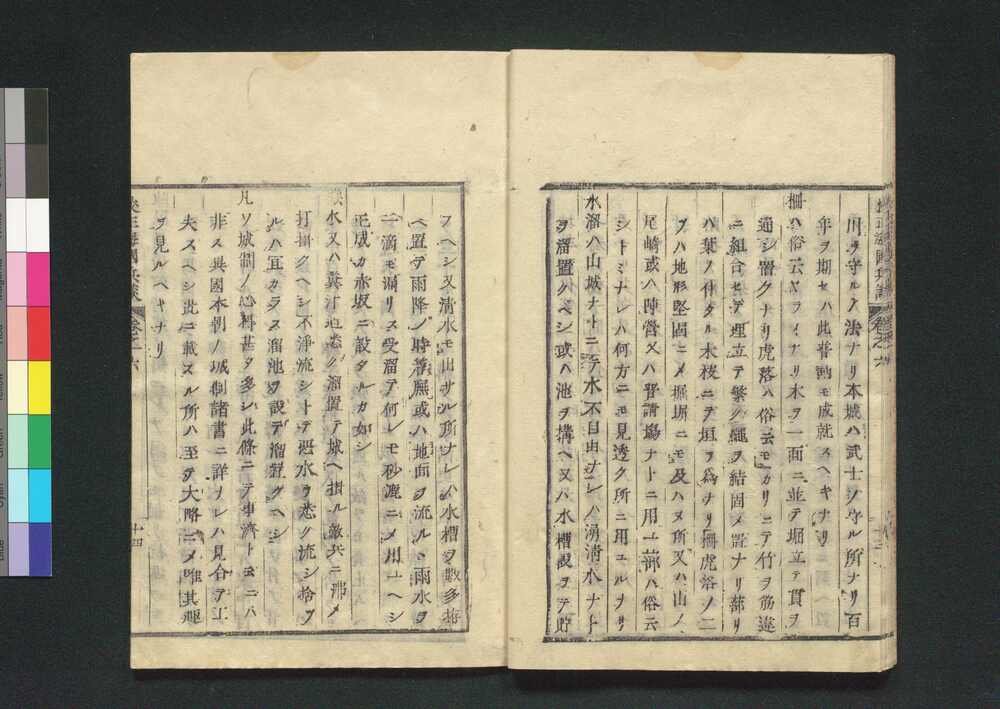 川ヲ守ルノ法ナリ本城ハ武士ノ守ル所ナリ百
年ヲ期セハ此普請モ成就スヘキナリ
柵ハ俗云ヤライナリ木ヲ一面ニ並テ堀立テ貫ヲ
通シ置クナリ虎落ハ俗云モカリニテ竹ヲ筋違
ニ組合セテ埋立テ繁ク繩ヲ結固メ置ナリ蔀リ
ハ葉ノ付タル木枝ニテ垣ヲ為ナリ柵虎落ノ二
ツハ地形堅固ニメ堀塀ニモ及ハヌ所又ハ山ノ
尾崎或ハ陣営又ハ普請場ナトニ用ユ蔀ハ俗云
シトミナレハ何方ニモ見透ク所ニ用ユルナリ
水溜ハ山城ナトニテ水不自由ナレハ湧清水ナト
ヲ溜置クベシ或ハ池ヲ構ヘ又ハ水槽設ヲテ貯
フヘシ又清水モ出サル所ナレハ水槽ヲ数多拵
ヘ置テ雨降ノ時簷廡或ハ地面ヲ流ルヽ雨水ヲ
一滴モ漏リス受溜テ何レモ砂漉ニメ用ユヘシ
正成カ赤坂ニ設タルカ如シ
水又ハ糞汁迄悉ク溜置テ城ヘ指ル敵兵ニ沸メ
打掛クヘシ不浄流シトテ悪水ヲ悉ク流シ捨ツ
ルハ宜カラス溜池ヲ設テ溜置クヘシ
凡ソ城制ノ心得甚タ多シ此條ニテ事濟ト云ニハ
非ス異國本朝ノ城制諸書ニ詳ナレハ見合テ工
夫スヘシ此ニ載スル所ハ至テ大略ニメ唯其趣
ヲ見ルヘキナリ
海國兵談
卷之六
十四